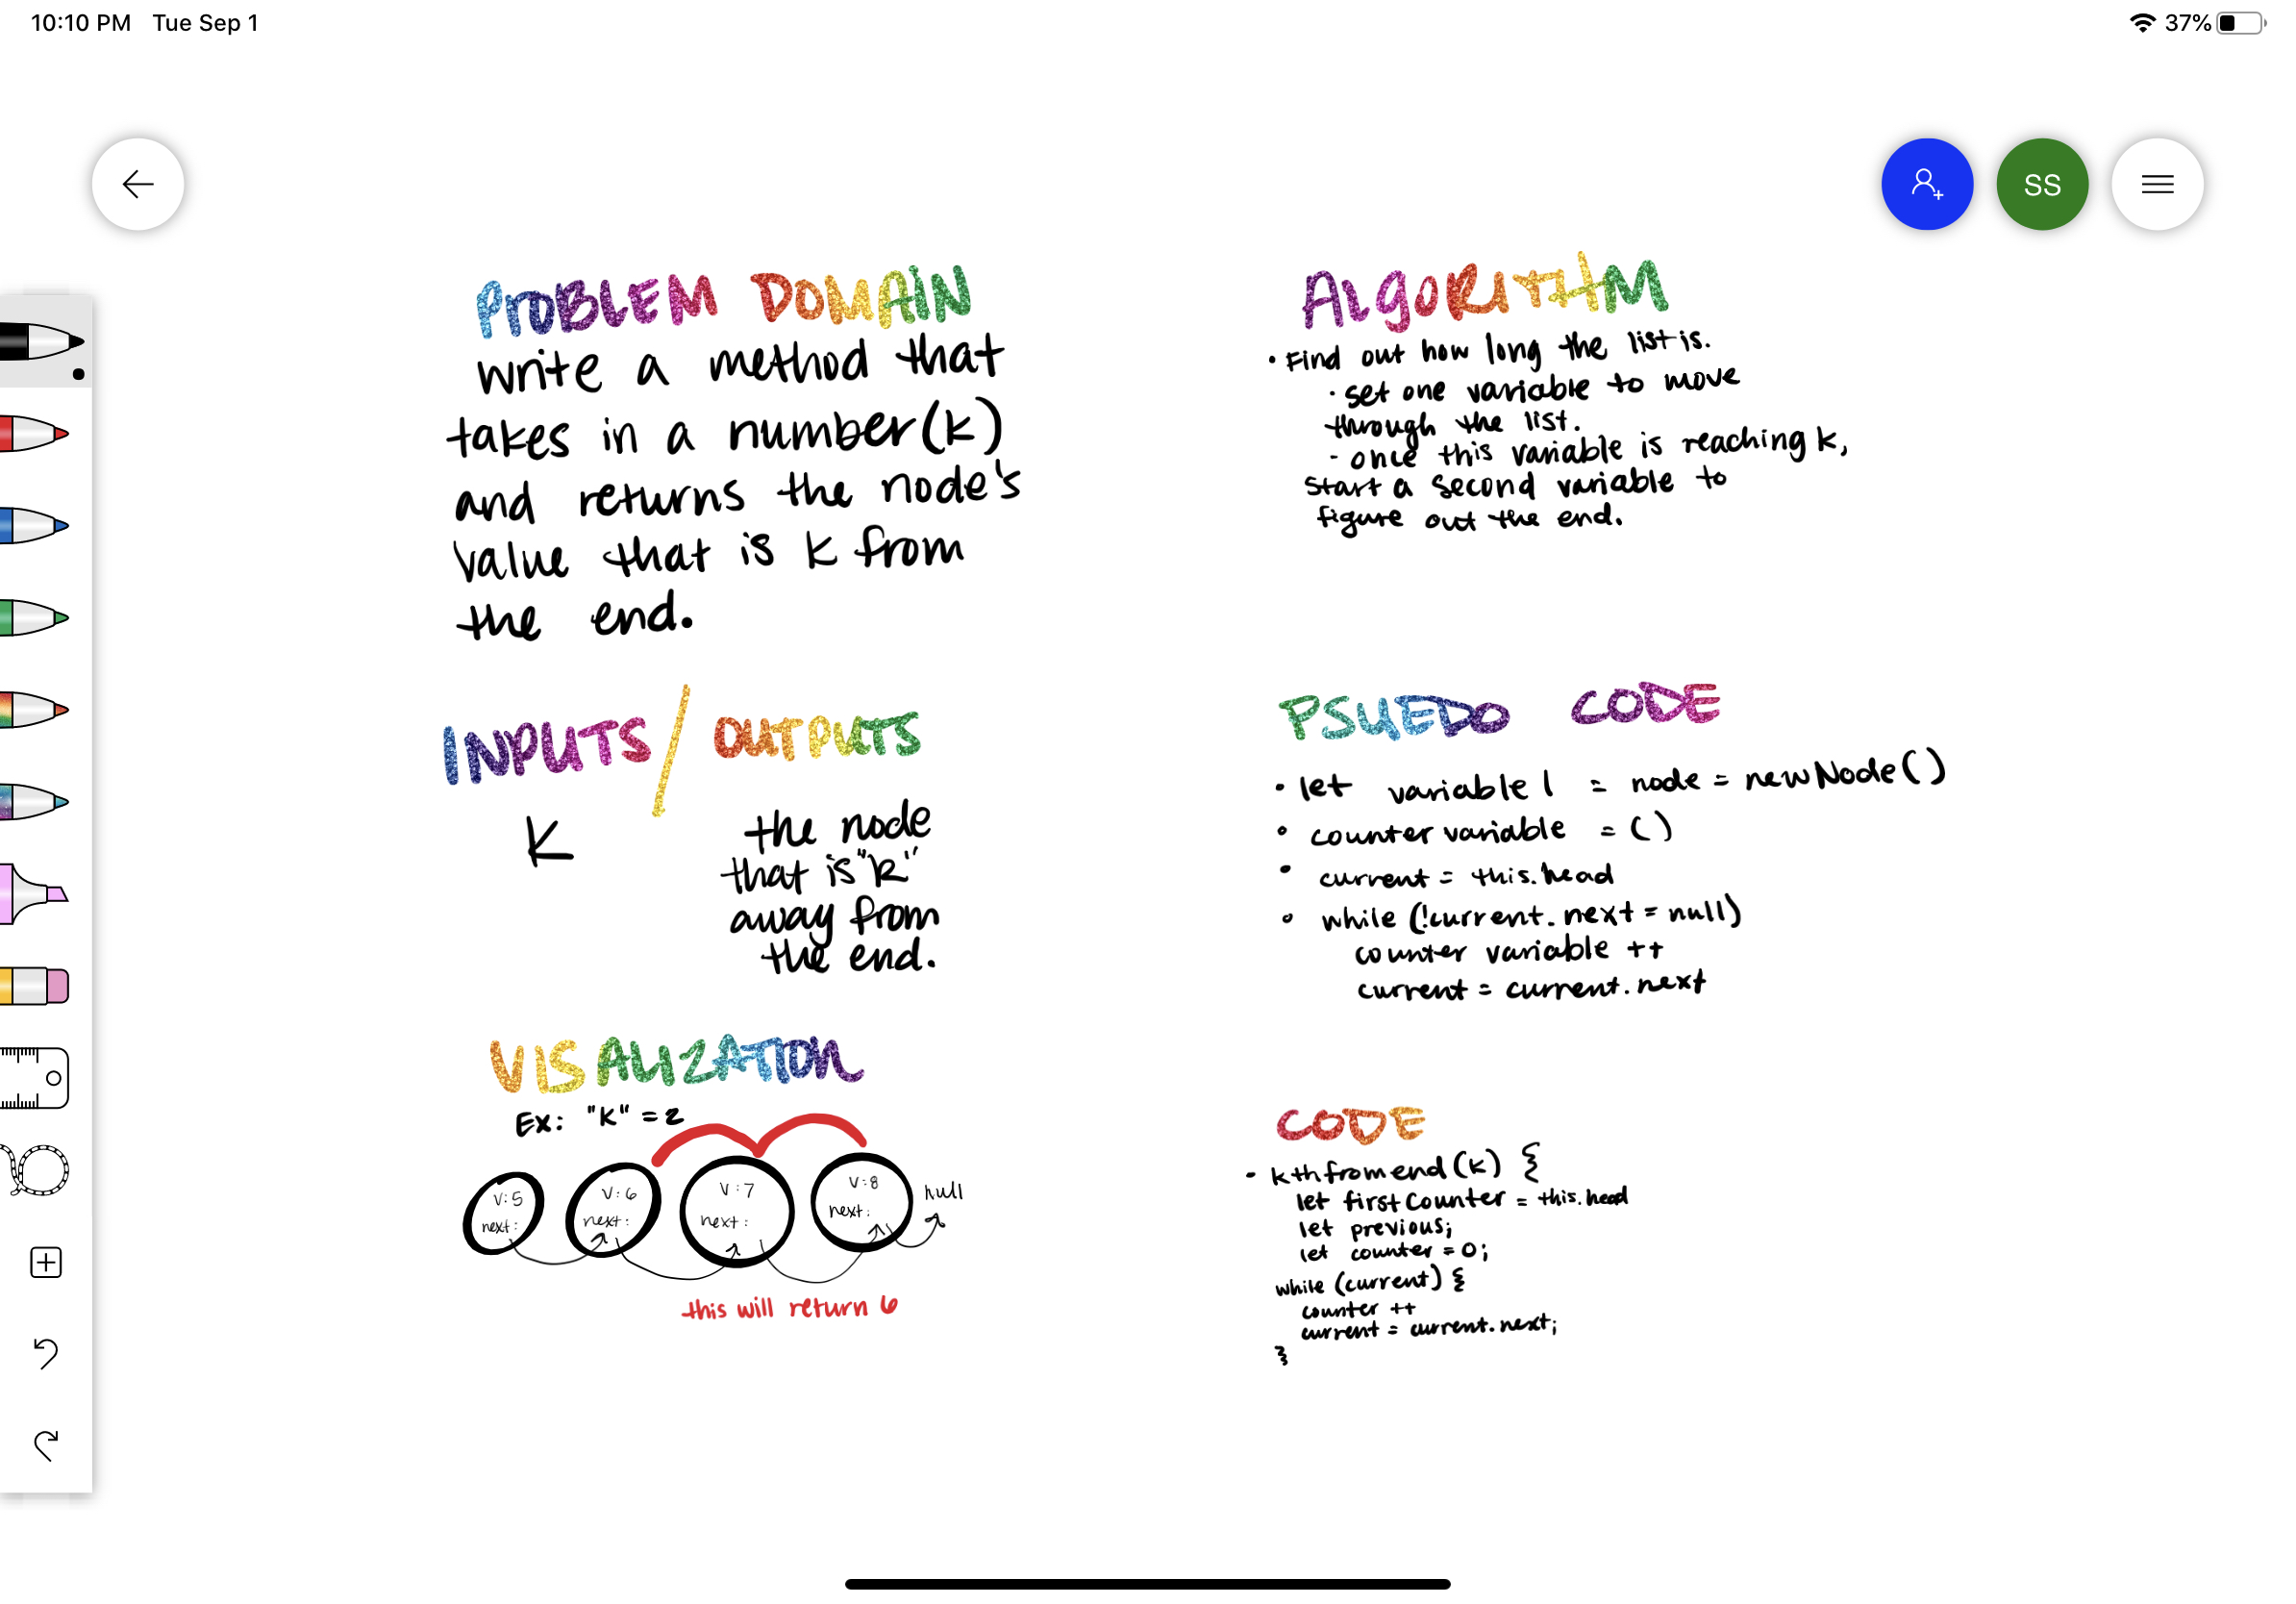 10:10 PM Tue Sep 1
37%
SS
PROBLEM DOMAIN
write a method that
takes in a number(k)
and returns the node's
value that is k from
the end.
INPUTS / OUTPUTS
K
the node
that is "k"
away from
the end.
VISAUIZATION
Ex: "K" = 2
V:5
next:
V:6
next:
V:7
next:
V:8
next:
null
this will return 6
ALGORITHM
• Find out how long the list is.
• set one variable to move
through the list.
- once this variable is reaching k,
start a second variable to
figure out the end.
PSUEDO CODE
• let variable 1 = node = new Node()
• counter variable = ()
• current = this.head
• while (!current.next = null)
counter variable ++
current = current.next
CODE
• kthfromend(k) {
let first counter = this.head
let previous;
let counter = 0;
while (current) {
counter ++
current = current.next;
}